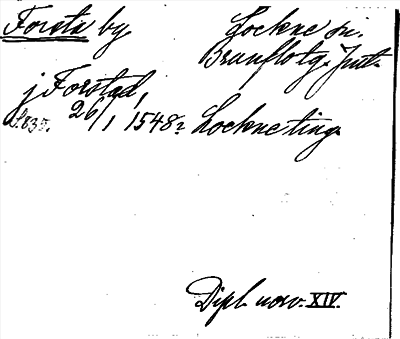 Forsta by
Lockne sn.
Brunflo tg. Jmt.
j Forstad,
S. 835. 26/1 1548? Lockne ting.
Dipl. norv. XIV.